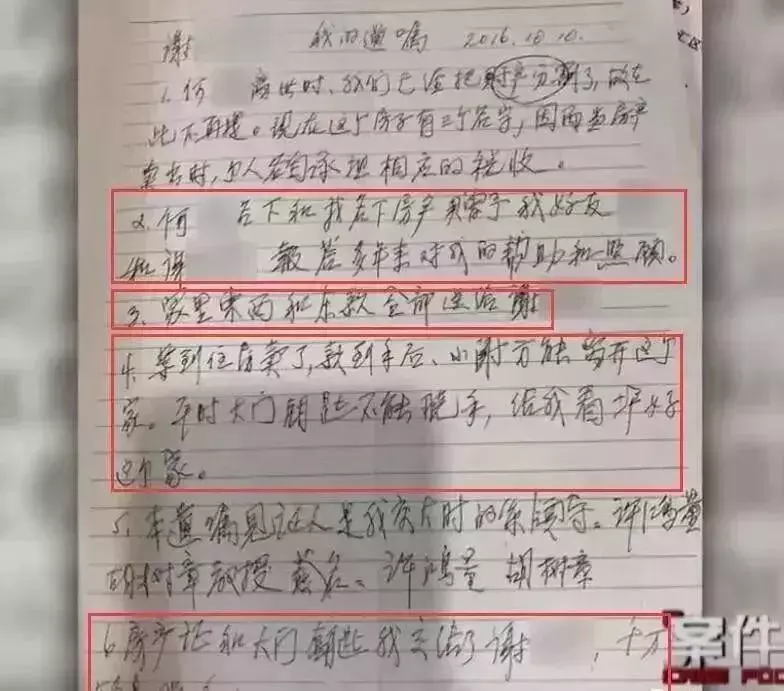 谢 我的遗嘱 2016.10.10.
1. 何 离世时、我们已经把财产分割了,故在
此不再提。现在这个房子有三个名字,因而当房产
卖出时,个人各自承担相应的税收。
2. 何 名下和我名下房产赠予我好友
和谢 报答多年来对我的帮助和照顾。
3、家里东西和存款全部送给谢
4、等到住房卖了,款到手后、小谢方能离开这个
家。平时大门钥匙不能脱手,给我看护好
这个家。
5、本遗嘱见证人是我 时的 领导。许鸿量
胡树章教授 签名、许鸿量 胡树章
6房产证和大门钥匙我交给了谢 ,千万
案件